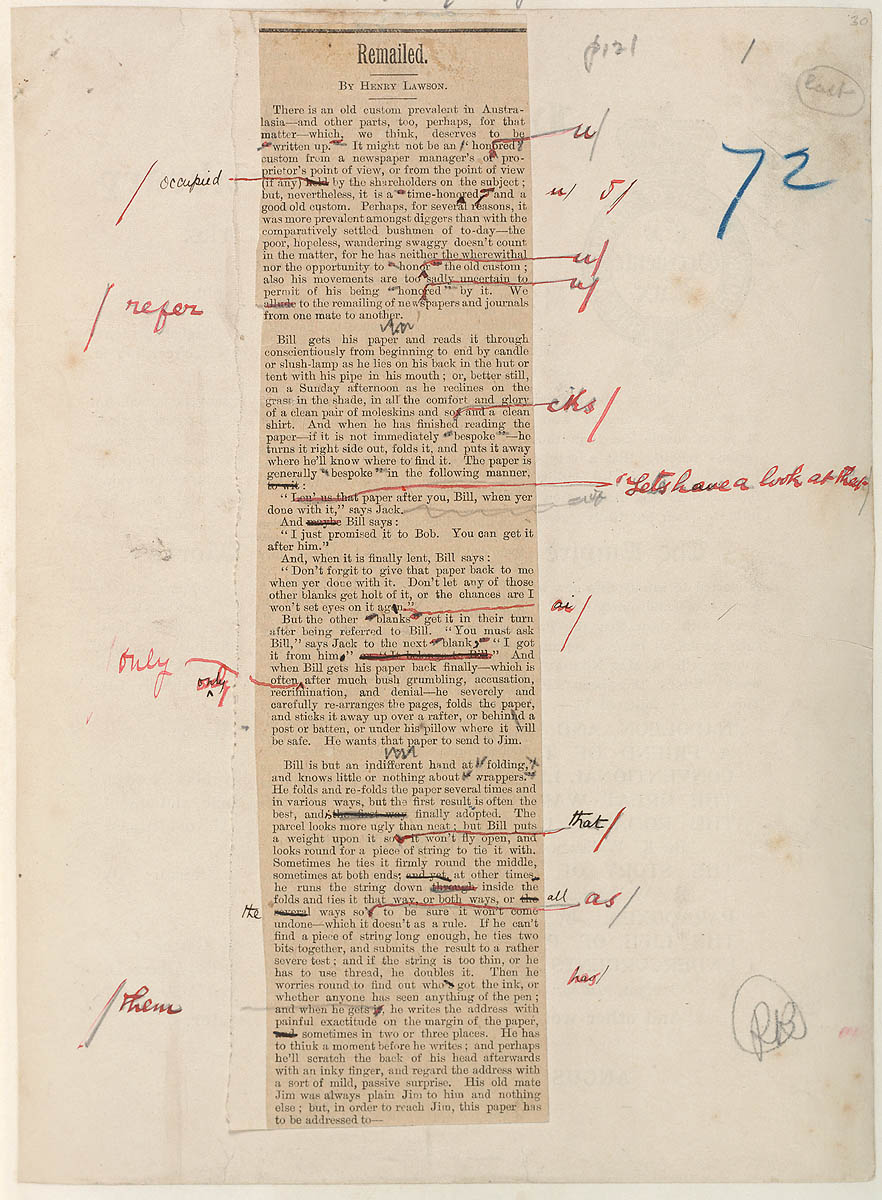 30
p121
/
last
Remailed.
By Henry Lawson.
There is an old custom prevalent in Austra-
lasia—and other parts, too, perhaps, for that
matter—which, we think, deserves to be
u/
"written up." It might not be an "honored"
custom from a newspaper manager's or pro-
prietor's point of view, or from the point of view
occupied
(if any) held by the shareholders on the subject;
but, nevertheless, it is a "time-honored" and a
u/ 5/
good old custom. Perhaps, for several reasons, it
was more prevalent amongst diggers than with the
comparatively settled bushmen of to-day—the
poor, hopeless, wandering swaggy doesn't count
in the matter, for he has neither the wherewithal
u/
nor the opportunity to "honor" the old custom;
also his movements are too sadly uncertain to
u/
permit of his being "honored" by it. We
/ refer
allude to the remailing of newspapers and journals
from one mate to another.
72
Bill gets his paper and reads it through
conscientiously from beginning to end by candle
or slush-lamp as he lies on his back in the hut or
tent with his pipe in his mouth; or, better still,
on a Sunday afternoon as he reclines on the
grass in the shade, in all the comfort and glory
cks/
of a clean pair of moleskins and sox and a clean
shirt. And when he has finished reading the
paper—if it is not immediately "bespoke"—he
turns it right side out, folds it, and puts it away
where he'll know where to find it. The paper is
generally "bespoke" in the following manner,
to wit:
"Let's have a look at that
"Len' us that paper after you, Bill, when yer
done with it," says Jack.
And maybe Bill says:
"I just promised it to Bob. You can get it
after him."
And, when it is finally lent, Bill says:
"Don't forgit to give that paper back to me
when yer done with it. Don't let any of those
other blanks get holt of it, or the chances are I
won't set eyes on it agen."
ai/
But the other "blanks" get it in their turn
after being referred to Bill. "You must ask
Bill," says Jack to the next "blank," "I got
it from him," or "It belongs to Bill." And
/only
when Bill gets his paper back finally—which is
only
often after much bush grumbling, accusation,
recrimination, and denial—he severely and
carefully re-arranges the pages, folds the paper,
and sticks it away up over a rafter, or behind a
post or batten, or under his pillow where it will
be safe. He wants that paper to send to Jim.
Bill is but an indifferent hand at folding,
and knows little or nothing about wrappers.
He folds and re-folds the paper several times and
in various ways, but the first result is often the
best, and the first way finally adopted. The
that/
parcel looks more ugly than neat; but Bill puts
a weight upon it so it won't fly open, and
looks round for a piece of string to tie it with.
Sometimes he ties it firmly round the middle,
sometimes at both ends; and yet, at other times
he runs the string down through inside the
folds and ties it that way, or both ways, or the
all as/
the
several ways so to be sure it won't come
undone—which it doesn't as a rule. If he can't
find a piece of string long enough, he ties two
bits together, and submits the result to a rather
severe test; and if the string is too thin, or he
has to use thread, he doubles it. Then he
worries round to find out who's got the ink, or
has/
whether anyone has seen anything of the pen;
/them
and when he gets it, he writes the address with
painful exactitude on the margin of the paper,
and sometimes in two or three places. He has
to think a moment before he writes; and perhaps
he'll scratch the back of his head afterwards
with an inky finger, and regard the address with
a sort of mild, passive surprise. His old mate
Jim was always plain Jim to him and nothing
else; but, in order to reach Jim, this paper has
to be addressed to—